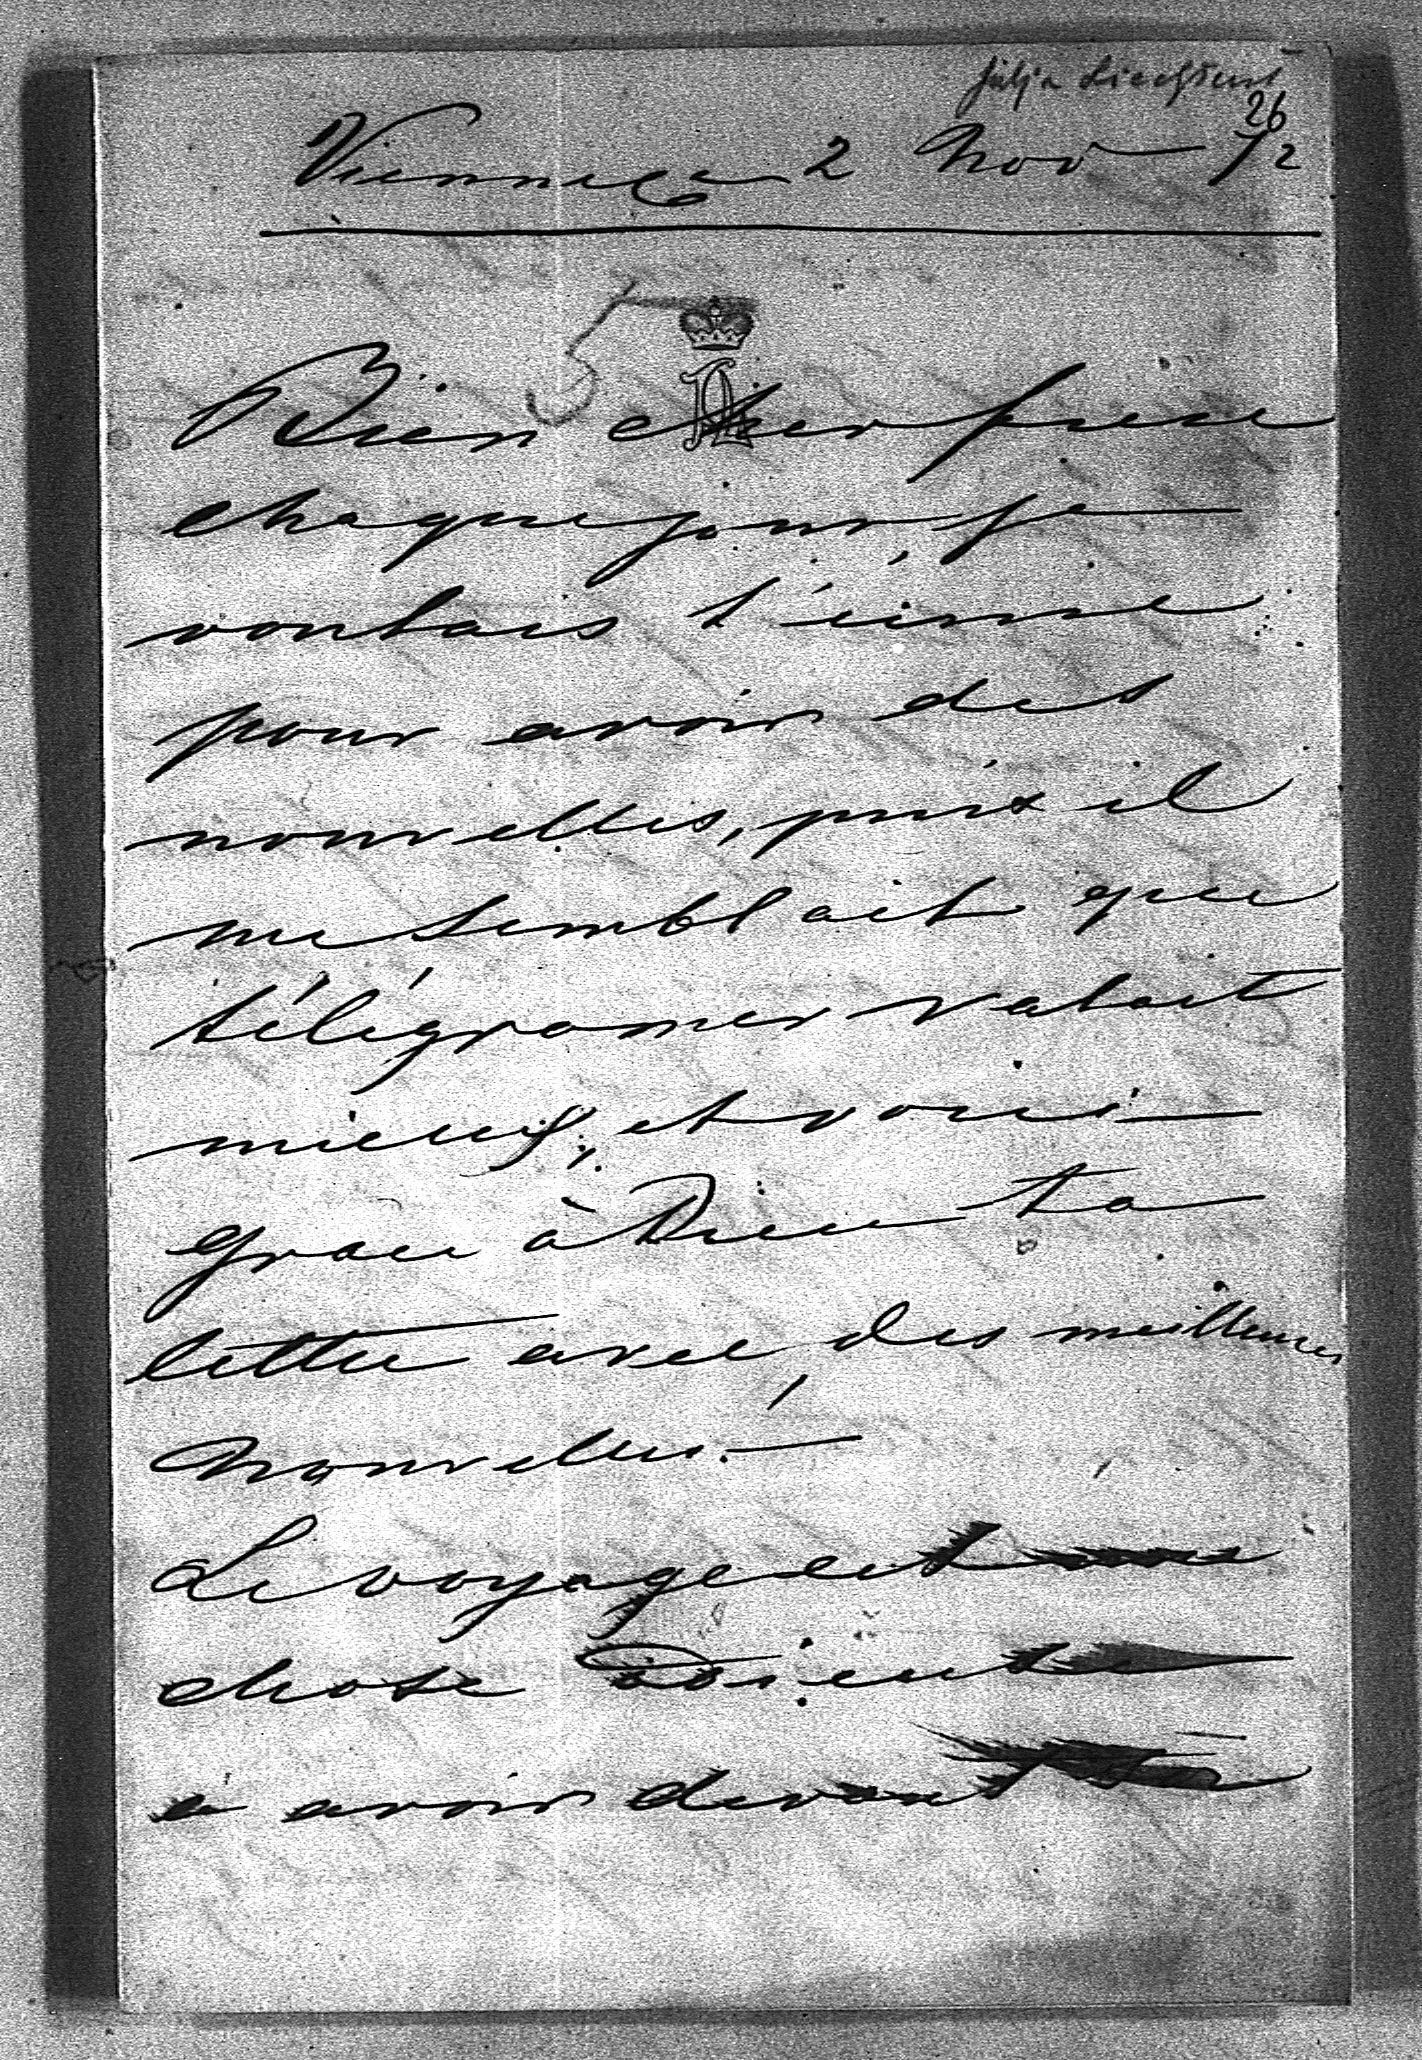 Julja Liechtenst
26
Vienne ce 2 Nov 72
5
Bien cher frère
chaque jour je
voulais t'écrire
pour avoir des
nouvelles, puis il
me semblait que
télégramer valait
mieux, et voici
grace à Dieu ta
lettre avec des meilleures
nouvelles.—
Le voyage est une
chose
à avoir devant